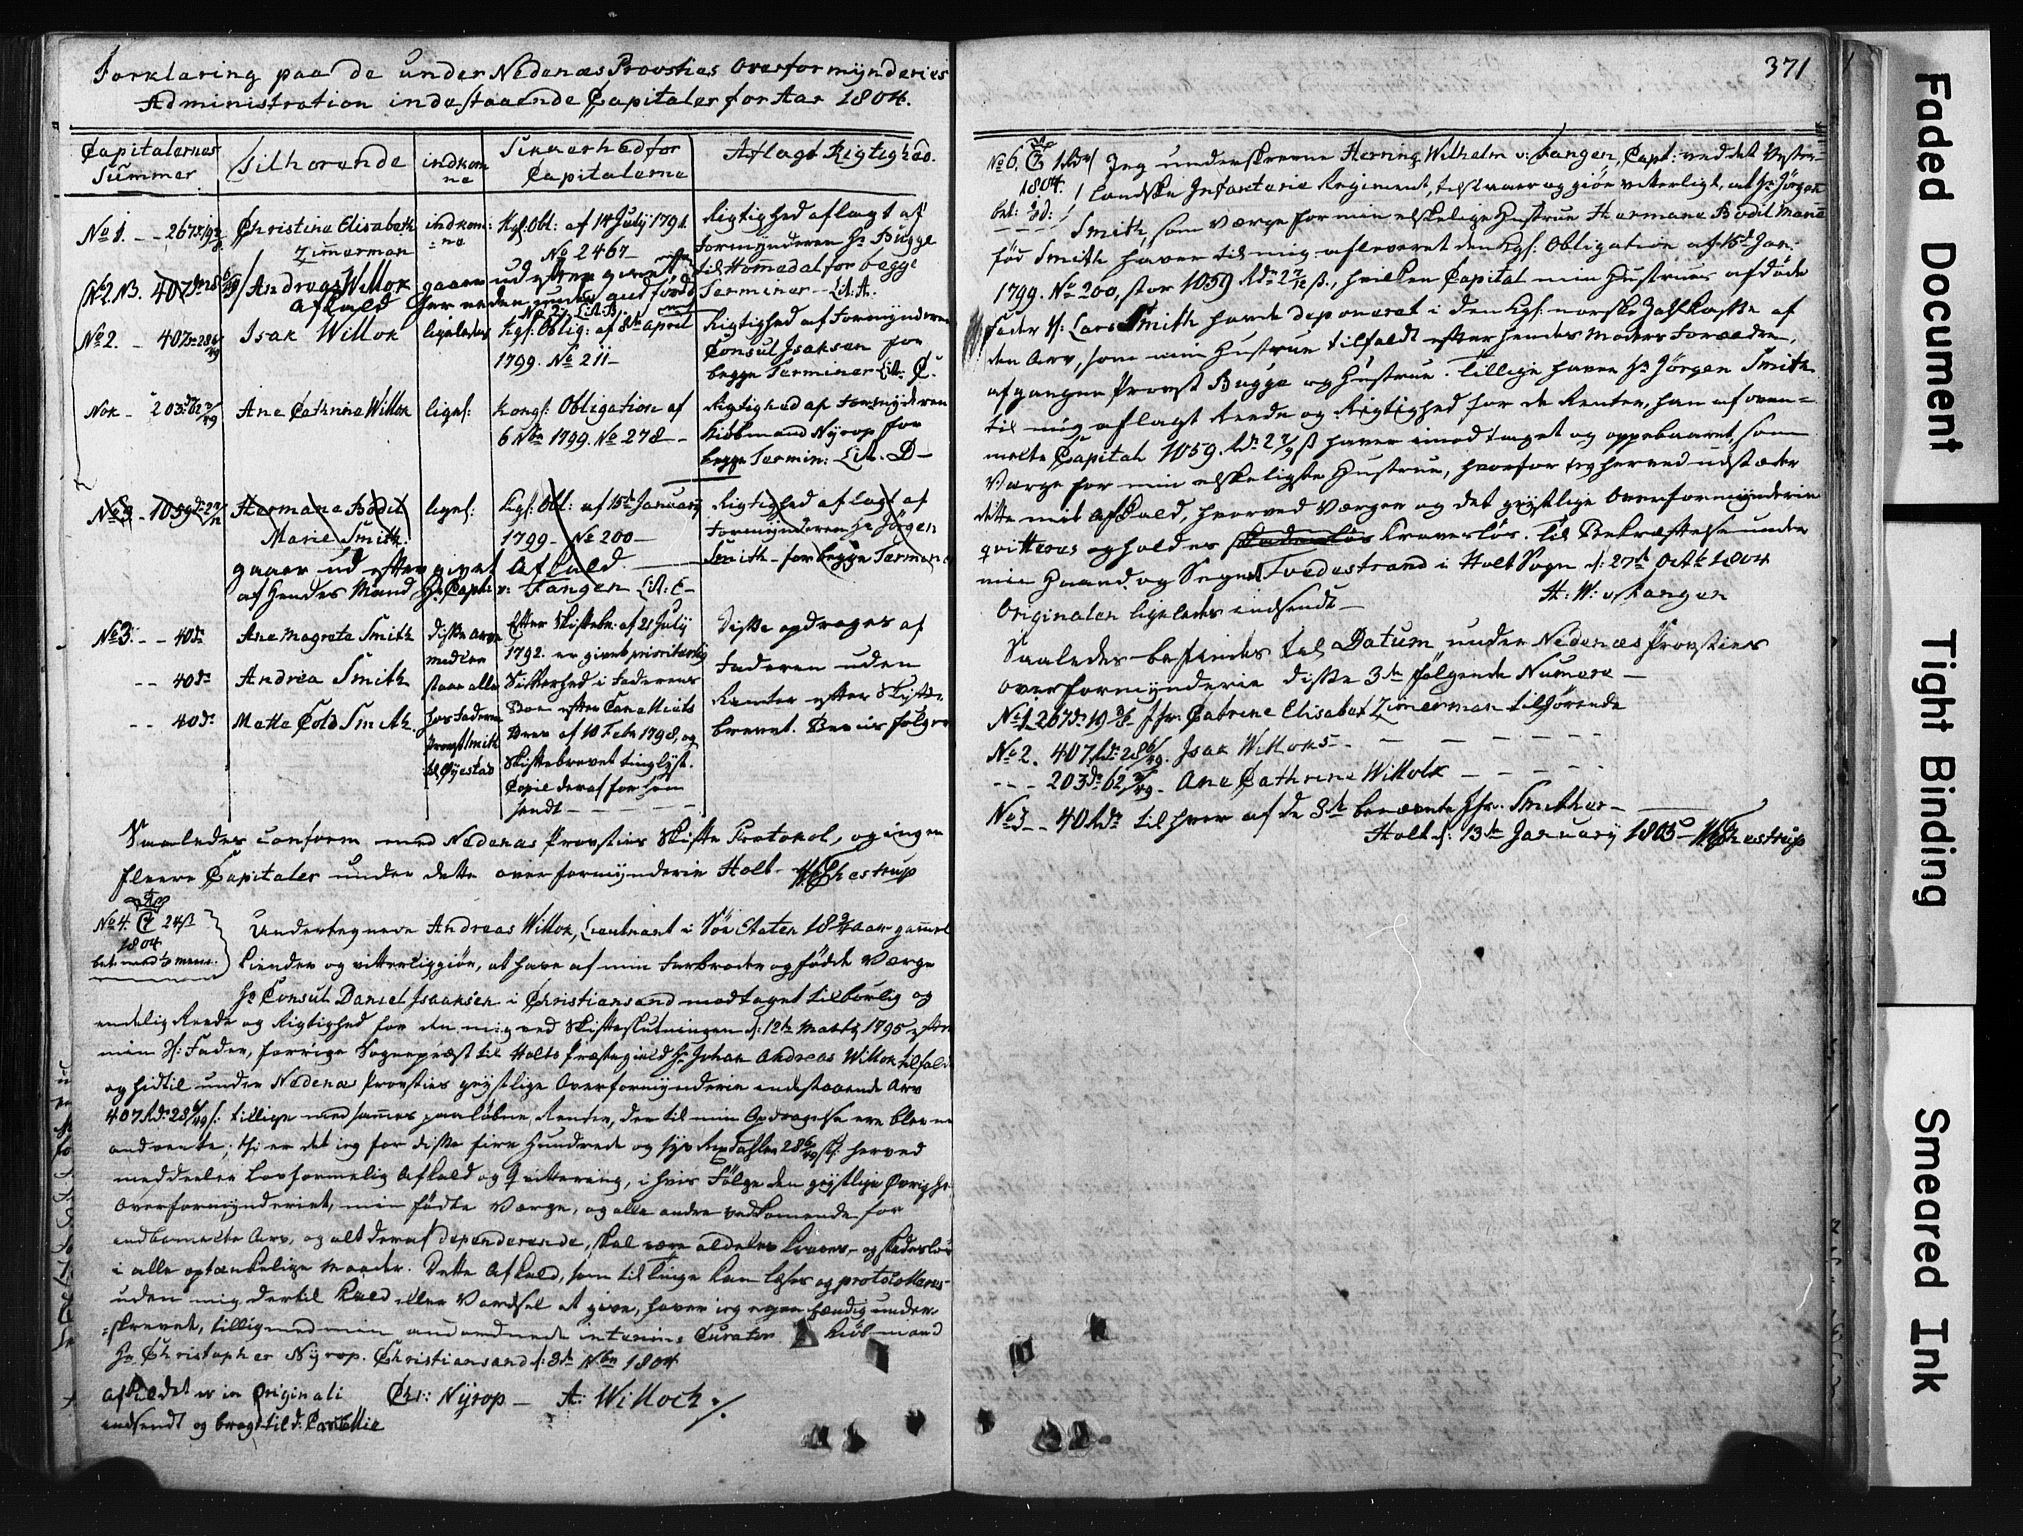 Forklaring paa de under Nedenæs Provsties Overformynderies
Administration indestaaende Capitaler for Aar 1804.
Capitalernes Summer
Tilhørende
indkomne
Sikkerhed for Capitalerne
Aflagt Rigtighed.
No 1. - - 267
Christine Elisabeth
Zimmerman
indkom-
:ne
Kgl: Obl: af 14 July 1791.
No 2467 -
Rigtighed aflagt af
Formynderen Hr Bugge
til Hommedal for begge
Terminer - Lit. A.
No 2. No 3. 407
Andreas Willok gaaer ud efter givet
Afkald
No 2. - 407
Isak Willok
ligeledes
Kgl: Oblig: af 8de April
1799. No 211 -
Rigtighed af Formynderen
Consul Isaksen for
begge Terminer Lit: C.
Nok - 203
Ane Cathrine Willok
ligel:
Kongl: Obligation af
6 Nbr 1799. No 278 -
Rigtighed af Formynderen
Kiøbmand Nyrop for
begge Termin: Lit. D -
No 3 - 1059
Hermana Bodil
Marie Smith.
ligel:
Kgl: Obl: af 15de Januarii
1799 - No 200 -
Rigtighed aflagt af
Formynderen Hr Jørgen
Smith - for begge Termine
gaaer ud efter givet Afkald
af Hendes Mand Hr Capt: v: Fangen Lit: E -
No 3. - - 40
Ane Magreta Smith
- - 40
Andrea Smith
- - 40
Mette Cold Smith
Disse Arve
midler
staae alle
hos Faderen
Provst Smith
til Øyestad
Efter Skiftebr: af 21 July
1792. er givet prioriterlig
Sikkerhed i Faderens
Boe efter Cancellie
Brev af 10 Febr 1798, og
Skiftebrevet tinglyst.
Copie deraf før hen
sendt -
Disse opdrages af
Faderen uden
Renter efter Skifte-
brevet. Beviis følger
Saaledes conform med Nedenæs Provsties Skifte Protokol, og ingen
fleere Capitaler under dette Overformynderie Holt -
No 4. 24 ß
1804
Undertegnede Andreas Willok, Lieutnant i Søe Etaten 18 Aar gammel
kiender og vitterliggiør, at have af min Farbroder og fødde Værge
Hr Consul Daniel Isaaksen i Christiansand modtaget tilbørlig og
endelig Reede og Rigtighed for den mig ved Skifteslutningen d: 12te Martz 1795 efter
min Sl: Fader, forrige Sognepræst til Holts Præstegield Hr Johan Andreas Willok tilfaldne
og hidtil under Nedenæs Provsties geystlige Overformynderie indestaaende Arv
407 Rd: 28 tillige med sammes paaløbne Renter, der til min Opdragelse ere blevne
andvente; thi er det ieg for disse fire Hundrede og syv Rixdahler 28 herved
meddeeler lovformelig Afkald og Qvittering, i hvis Følge den geystlige Øvrighed
Overformynderiet, min fødte Værge, og alle andre vedkomende for
andbemelte Arv, og alt deraf dependerende, skal være aldeles kraves- og skadesløs
i alle optænkelige Maader. Dette Afkald, som til Tinge kan læses og protocolleres
uden mig dertil Kald eller Varsel at give, haver ieg egenhændig under-
:skrevet, tilligemed min anordnede interims Curator Kiøbmand
Hr Christopher Nyrop. Christiansand d: 3de Nbr 1804
Afkaldet er in Originali Chr: Nyrop - A: Willoch ./.
indsendt og bragt til d: Cancellie
371
No 6.
1804.
Jeg underskrevne Henning Wilhelm v: Fangen, Capt: ved det Vester-
landske Infanterie Regiment, tilstaaer og giør vitterligt, at Hr Jørgen
Smith, som Værge for min elskelige Hustrue Hermana Bodil Maria
fød Smith haver til mig afleveret den Kgl: Obligation af 15de Jan:
1799. No 200, stor 1059 Rdr 2 ß., hvilken Capital min Hustrues afdøde
Fader Sl: Lars Smith havde deponeret i den Kgl: norske Zahlkasse af
den Arv, som min Hustrue tilfaldt efter hendes Moders Forældre,
afgangne Provst Bugge og Hustrue. Tillige haver Hr Jørgen Smith
til mig aflagt Reede og Rigtighed for de Renter, han af oven=
melte Capital 1059. Rdr 2 ß haver imodtaget og oppebaaret, som
Værge for min elskeligste Hustrue, hvorfor jeg herved udstæder
dette mit Afkald, hvorved Værgen og det geystlige Overformynderie
qvitteres og holdes skadesløs Kravesløs. Til Bekræftelse under
min Haand og Segnet Tvedestrand i Holt Sogn d: 27de Octbr 1804
H: W: v Fangen
Originalen ligeledes indsendt -
Saaledes befindes til Datum under Nedenæs Provsties
Overformynderie disse 3de følgende Numere -
No 1. 267 19 Jfr: Catrine Elisabet Zimerman tilhørende
No 2. 407 Rdr 28 Isak Willoks -
- - - 203 62 Ane Cathrine Willok - - - -
No 3 - - 40 Rdr til hver af de 3de benævnte Jfr: Smither -
Holt d: 13de January 1805
Faded Document
Tight Binding
Smeared Ink